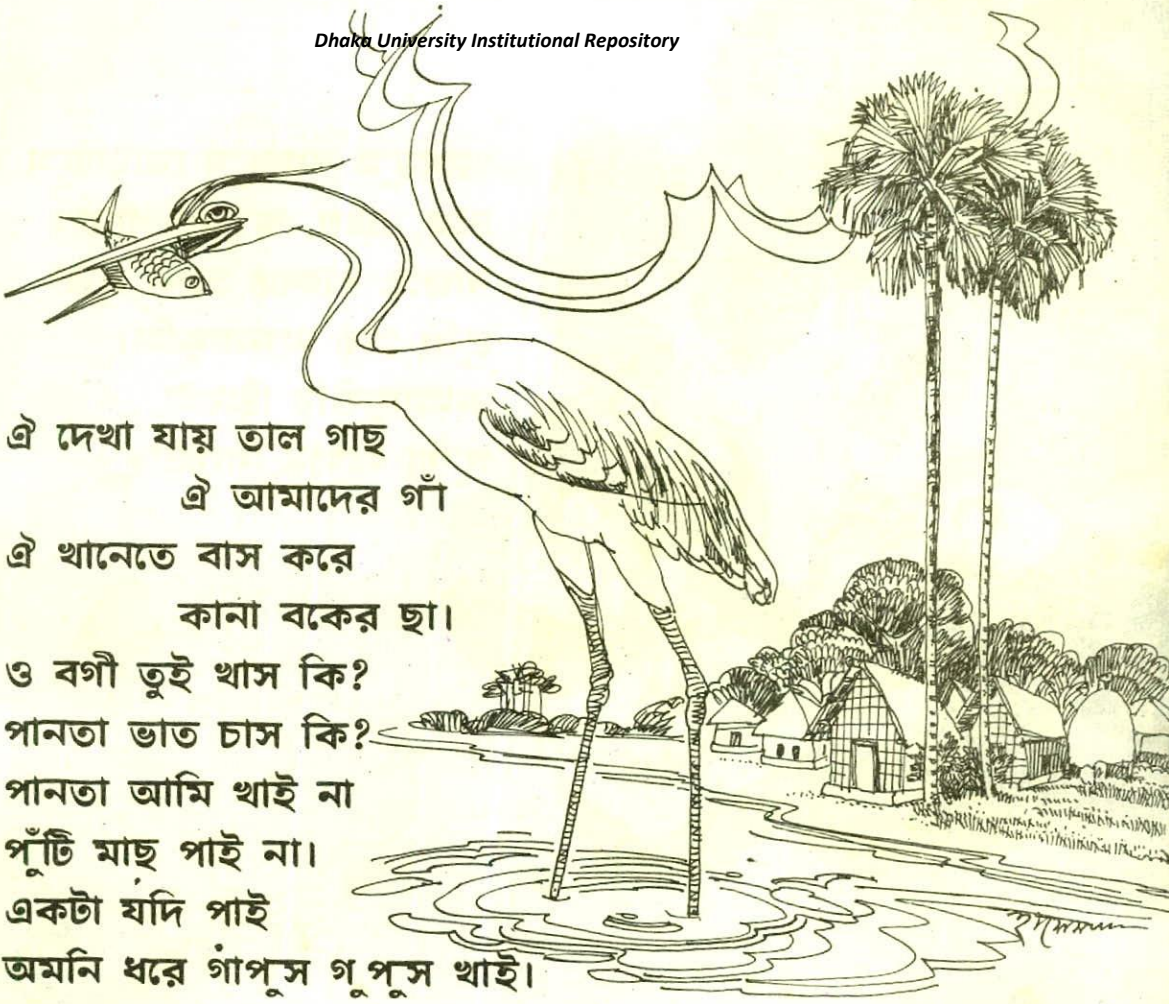 Dhaka University Institutional Repository
ঐ দেখা যায় তাল গাছ
ঐ আমাদের গাঁ
ঐ খানেতে বাস করে
কানা বকের ছা।
ও বগী তুই খাস কি?
পানতা ভাত চাস কি?
পানতা আমি খাই না
পুঁটি মাছ পাই না।
একটা যদি পাই
অমনি ধরে গাপুস গুপুস খাই।